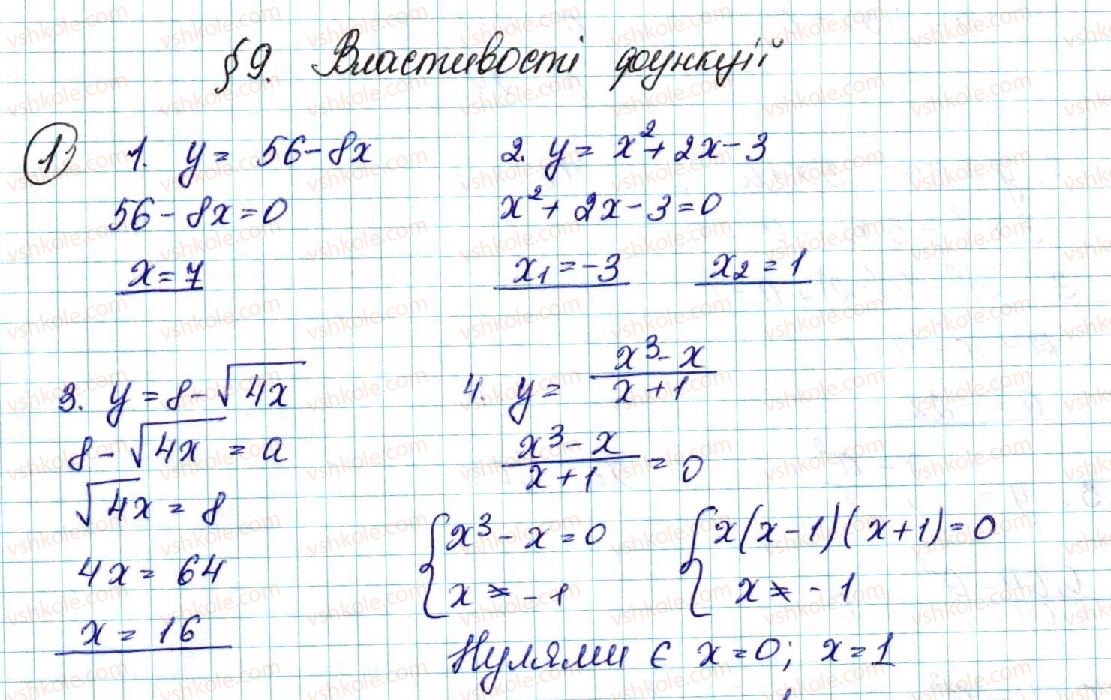 §9. Властивості функції
1) 1. y = 56 - 8x
56 - 8x = 0
x = 7
2. y = x² + 2x - 3
x² + 2x - 3 = 0
x₁ = -3 x₂ = 1
3. y = 8 - √4x
8 - √4x = 0
√4x = 8
4x = 64
x = 16
4. y = (x³ - x)/(x + 1)
(x³ - x)/(x + 1) = 0
{x³ - x = 0 {x(x - 1)(x + 1) = 0
x ≠ -1 x ≠ -1
Нулями є x = 0; x = 1
vshkole.com